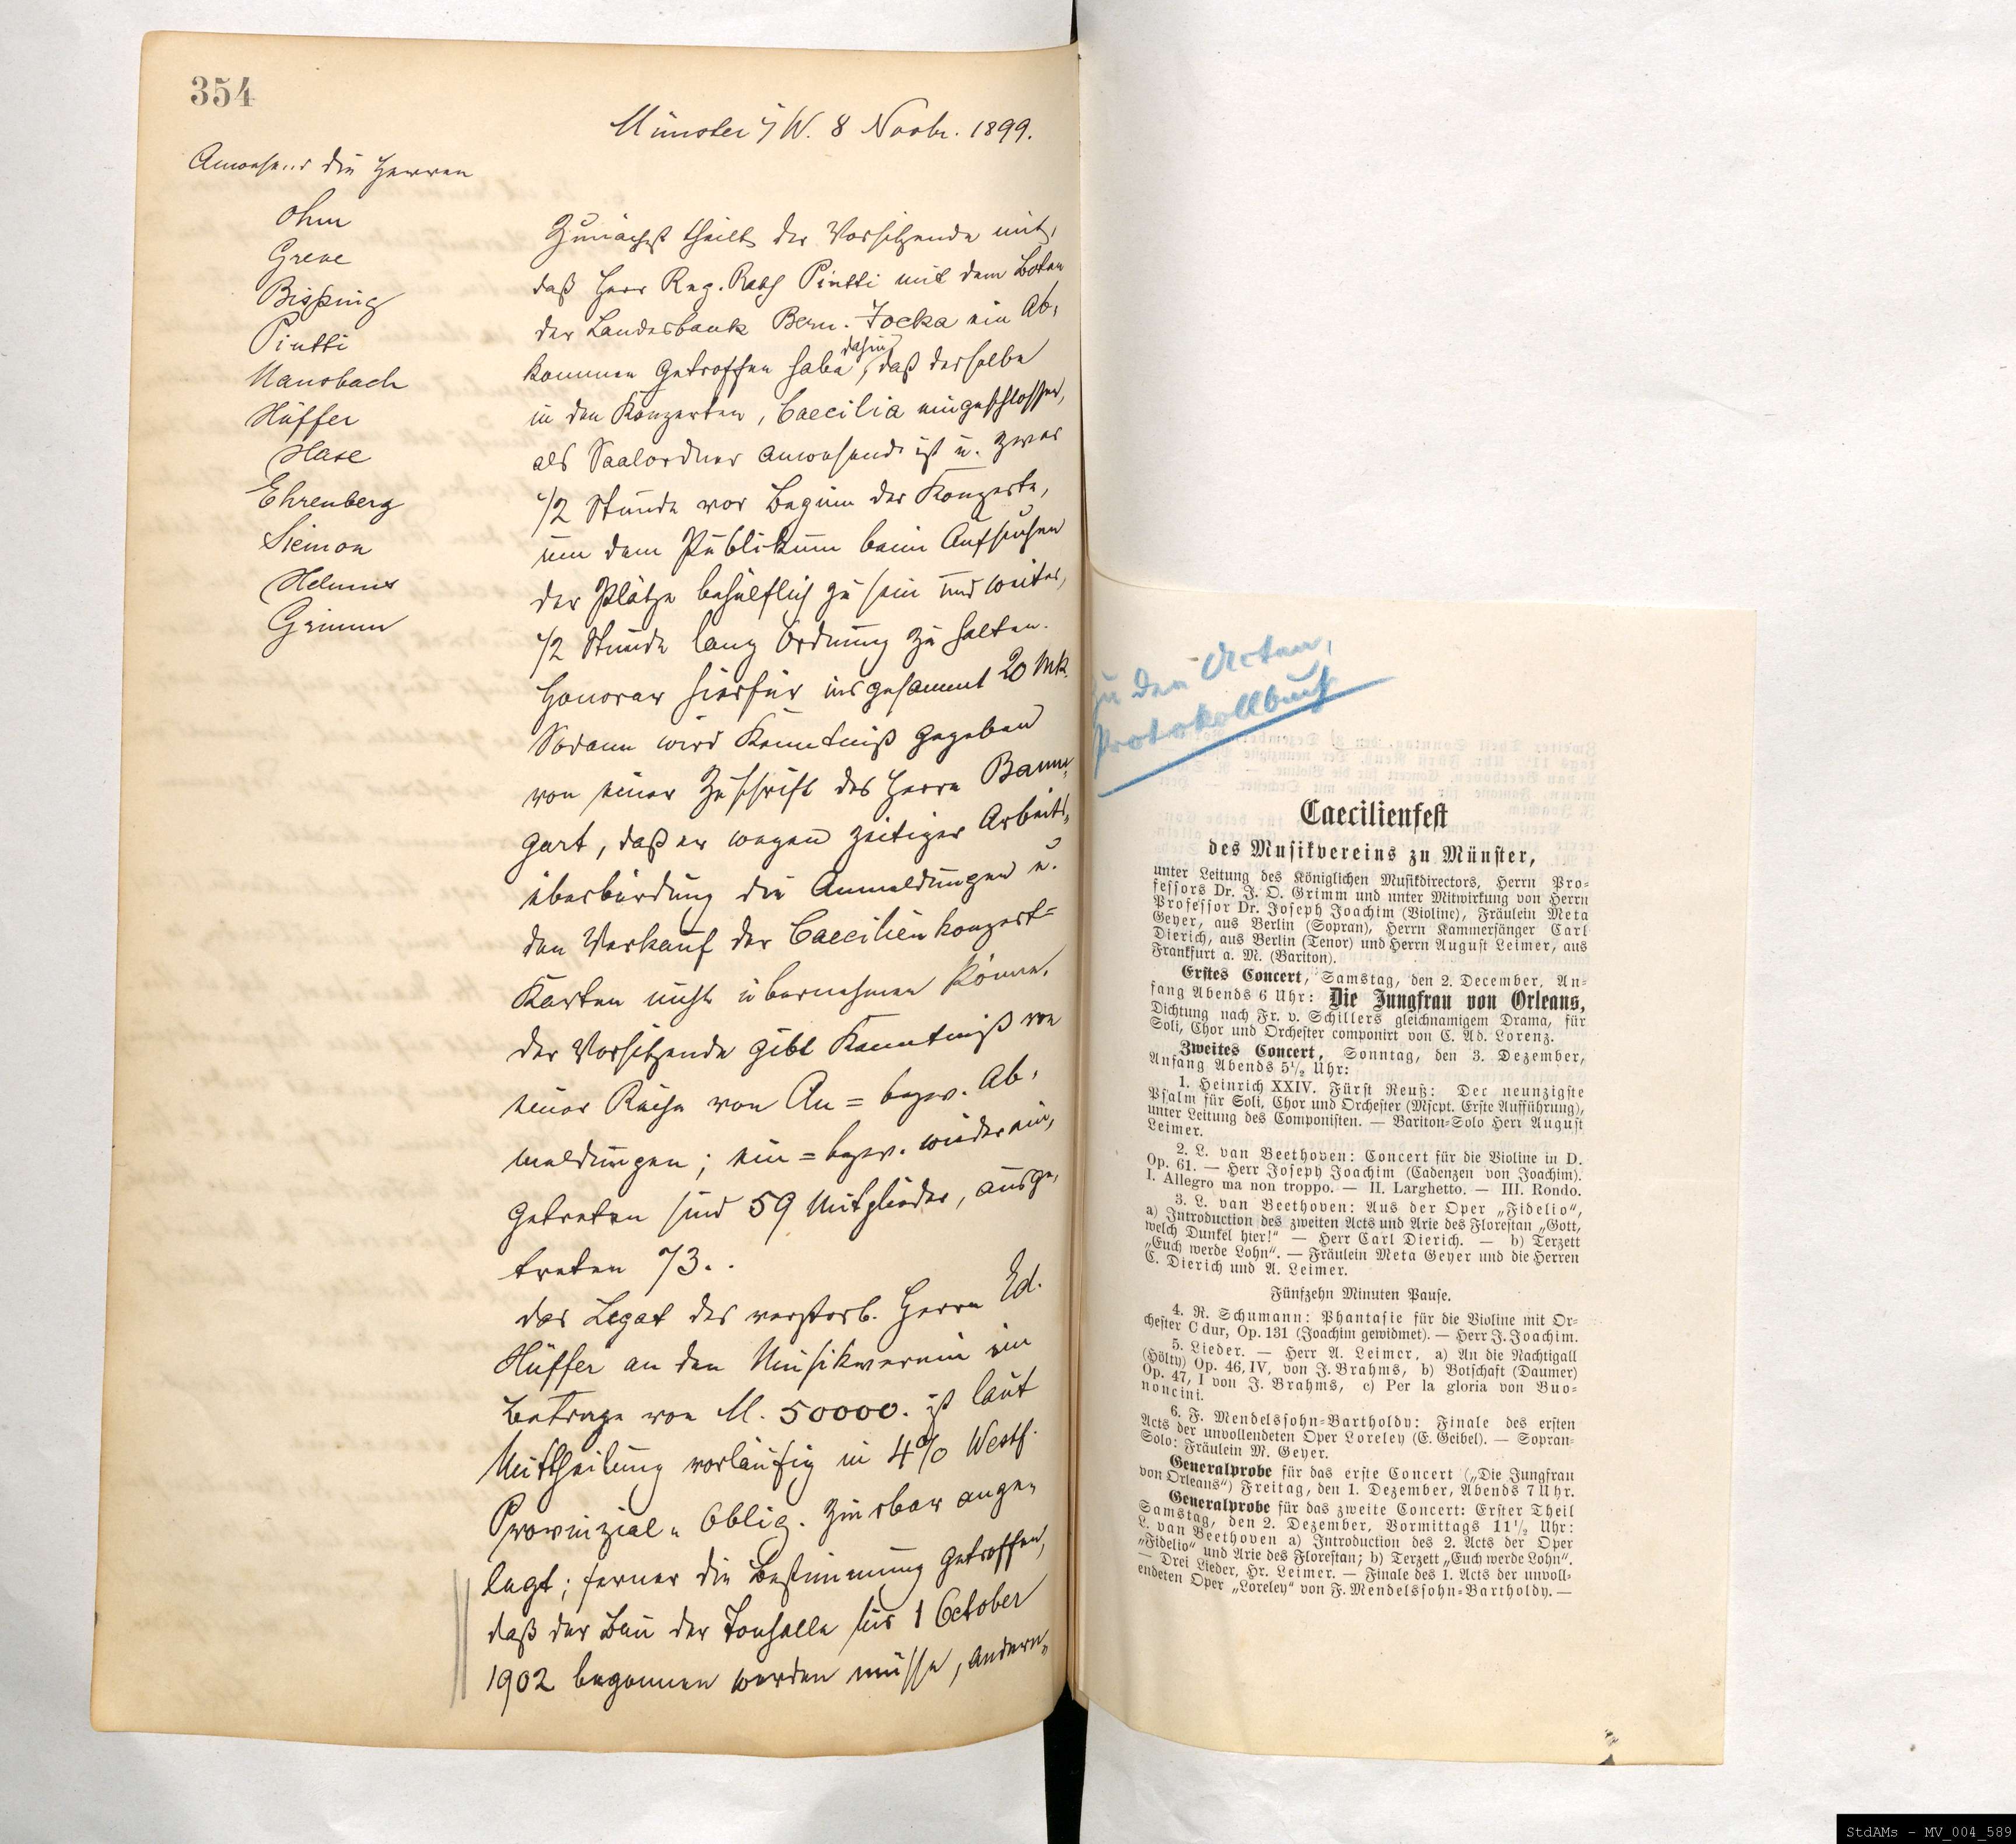 354
Münster i/W. 8 Novbr. 1899.
Anwesend die Herren
Ohm
Greve
Bisping
Piutti
Mansbach
Hüffer
Hase
Ehrenberg
Siemon
Helmus
Grimm
Zunächst theilt der Vorsitzende mit,
daß Herr Reg. Rath Piutti mit dem Boten
der Landesbank Bern. Focka ein Ab-
kommen getroffen habe dahin, daß derselbe
in den Konzerten, Caecilia eingeschlossen,
als Saalordner anwesend ist u. zwar
1/2 Stunde vor Beginn der Konzerte,
um dem Publikum beim Aufsuchen
der Plätze behülflich zu sein und weiter,
1/2 Stunde lang Ordnung zu halten.
Honorar hierfür insgesammt 20 Mk.
Sodann wird Kenntniß gegeben
von einer Zuschrift des Herrn Baum-
gart, daß er wegen zeitiger Arbeits-
überbürdung die Anmeldungen u.
den Verkauf der Caecilienkonzert=
Karten nicht übernehmen könne.
Der Vorsitzende gibt Kenntniß von
einer Reihe von An= bezw. Ab-
meldungen; ein= bezw. wiederein-
getreten sind 59 Mitglieder, ausge-
treten 73..
Das Legat des verstorb. Herrn Ed.
Hüffer an den Musikverein im
Betrage von M. 50000. ist laut
Mittheilung vorläufig in 4% Westf.
Provinzial-Oblig. zinsbar ange-
legt; ferner die Bestimmung getroffen,
daß der Bau der Tonhalle bis 1 October
1902 begonnen werden müsse, andern-
zu den Acten,
Protokollbuch
Caecilienfest
des Musikvereins zu Münster,
unter Leitung des Königlichen Musikdirectors, Herrn Pro-
fessors Dr. J. O. Grimm und unter Mitwirkung von Herrn
Professor Dr. Joseph Joachim (Violine), Fräulein Meta
Geyer, aus Berlin (Sopran), Herrn Kammersänger Carl
Dierich, aus Berlin (Tenor) und Herrn August Leimer, aus
Frankfurt a. M. (Bariton).
Erstes Concert, Samstag, den 2. December, An-
fang Abends 6 Uhr: Die Jungfrau von Orleans,
Dichtung nach Fr. v. Schillers gleichnamigem Drama, für
Soli, Chor und Orchester componirt von C. Ad. Lorenz.
Zweites Concert, Sonntag, den 3. Dezember,
Anfang Abends 5½ Uhr:
1. Heinrich XXIV. Fürst Reuß: Der neunzigste
Psalm für Soli, Chor und Orchester (Mscpt. Erste Aufführung),
unter Leitung des Componisten. — Bariton-Solo Herr August
Leimer.
2. L. van Beethoven: Concert für die Violine in D.
Op. 61. — Herr Joseph Joachim (Cadenzen von Joachim).
I. Allegro ma non troppo. — II. Larghetto. — III. Rondo.
3. L. van Beethoven: Aus der Oper „Fidelio“,
a) Introduction des zweiten Acts und Arie des Florestan „Gott,
welch Dunkel hier!“ — Herr Carl Dierich. — b) Terzett
„Euch werde Lohn“. — Fräulein Meta Geyer und die Herren
C. Dierich und A. Leimer.
Fünfzehn Minuten Pause.
4. R. Schumann: Phantasie für die Violine mit Or-
chester C dur, Op. 131 (Joachim gewidmet). — Herr J. Joachim.
5. Lieder. — Herr A. Leimer, a) An die Nachtigall
(Hölty) Op. 46, IV, von J. Brahms, b) Botschaft (Daumer)
Op. 47, I von J. Brahms, c) Per la gloria von Buo-
noncini.
6. F. Mendelssohn-Bartholdy: Finale des ersten
Acts der unvollendeten Oper Loreley (E. Geibel). — Sopran-
Solo: Fräulein M. Geyer.
Generalprobe für das erste Concert („Die Jungfrau
von Orleans“) Freitag, den 1. Dezember, Abends 7 Uhr.
Generalprobe für das zweite Concert: Erster Theil
Samstag, den 2. Dezember, Vormittags 11½ Uhr:
L. van Beethoven a) Introduction des 2. Acts der Oper
„Fidelio“ und Arie des Florestan; b) Terzett „Euch werde Lohn“.
— Drei Lieder, Hr. Leimer. — Finale des 1. Acts der unvoll-
endeten Oper „Loreley“ von F. Mendelssohn-Bartholdy. —
StdAMs - MV_004_589